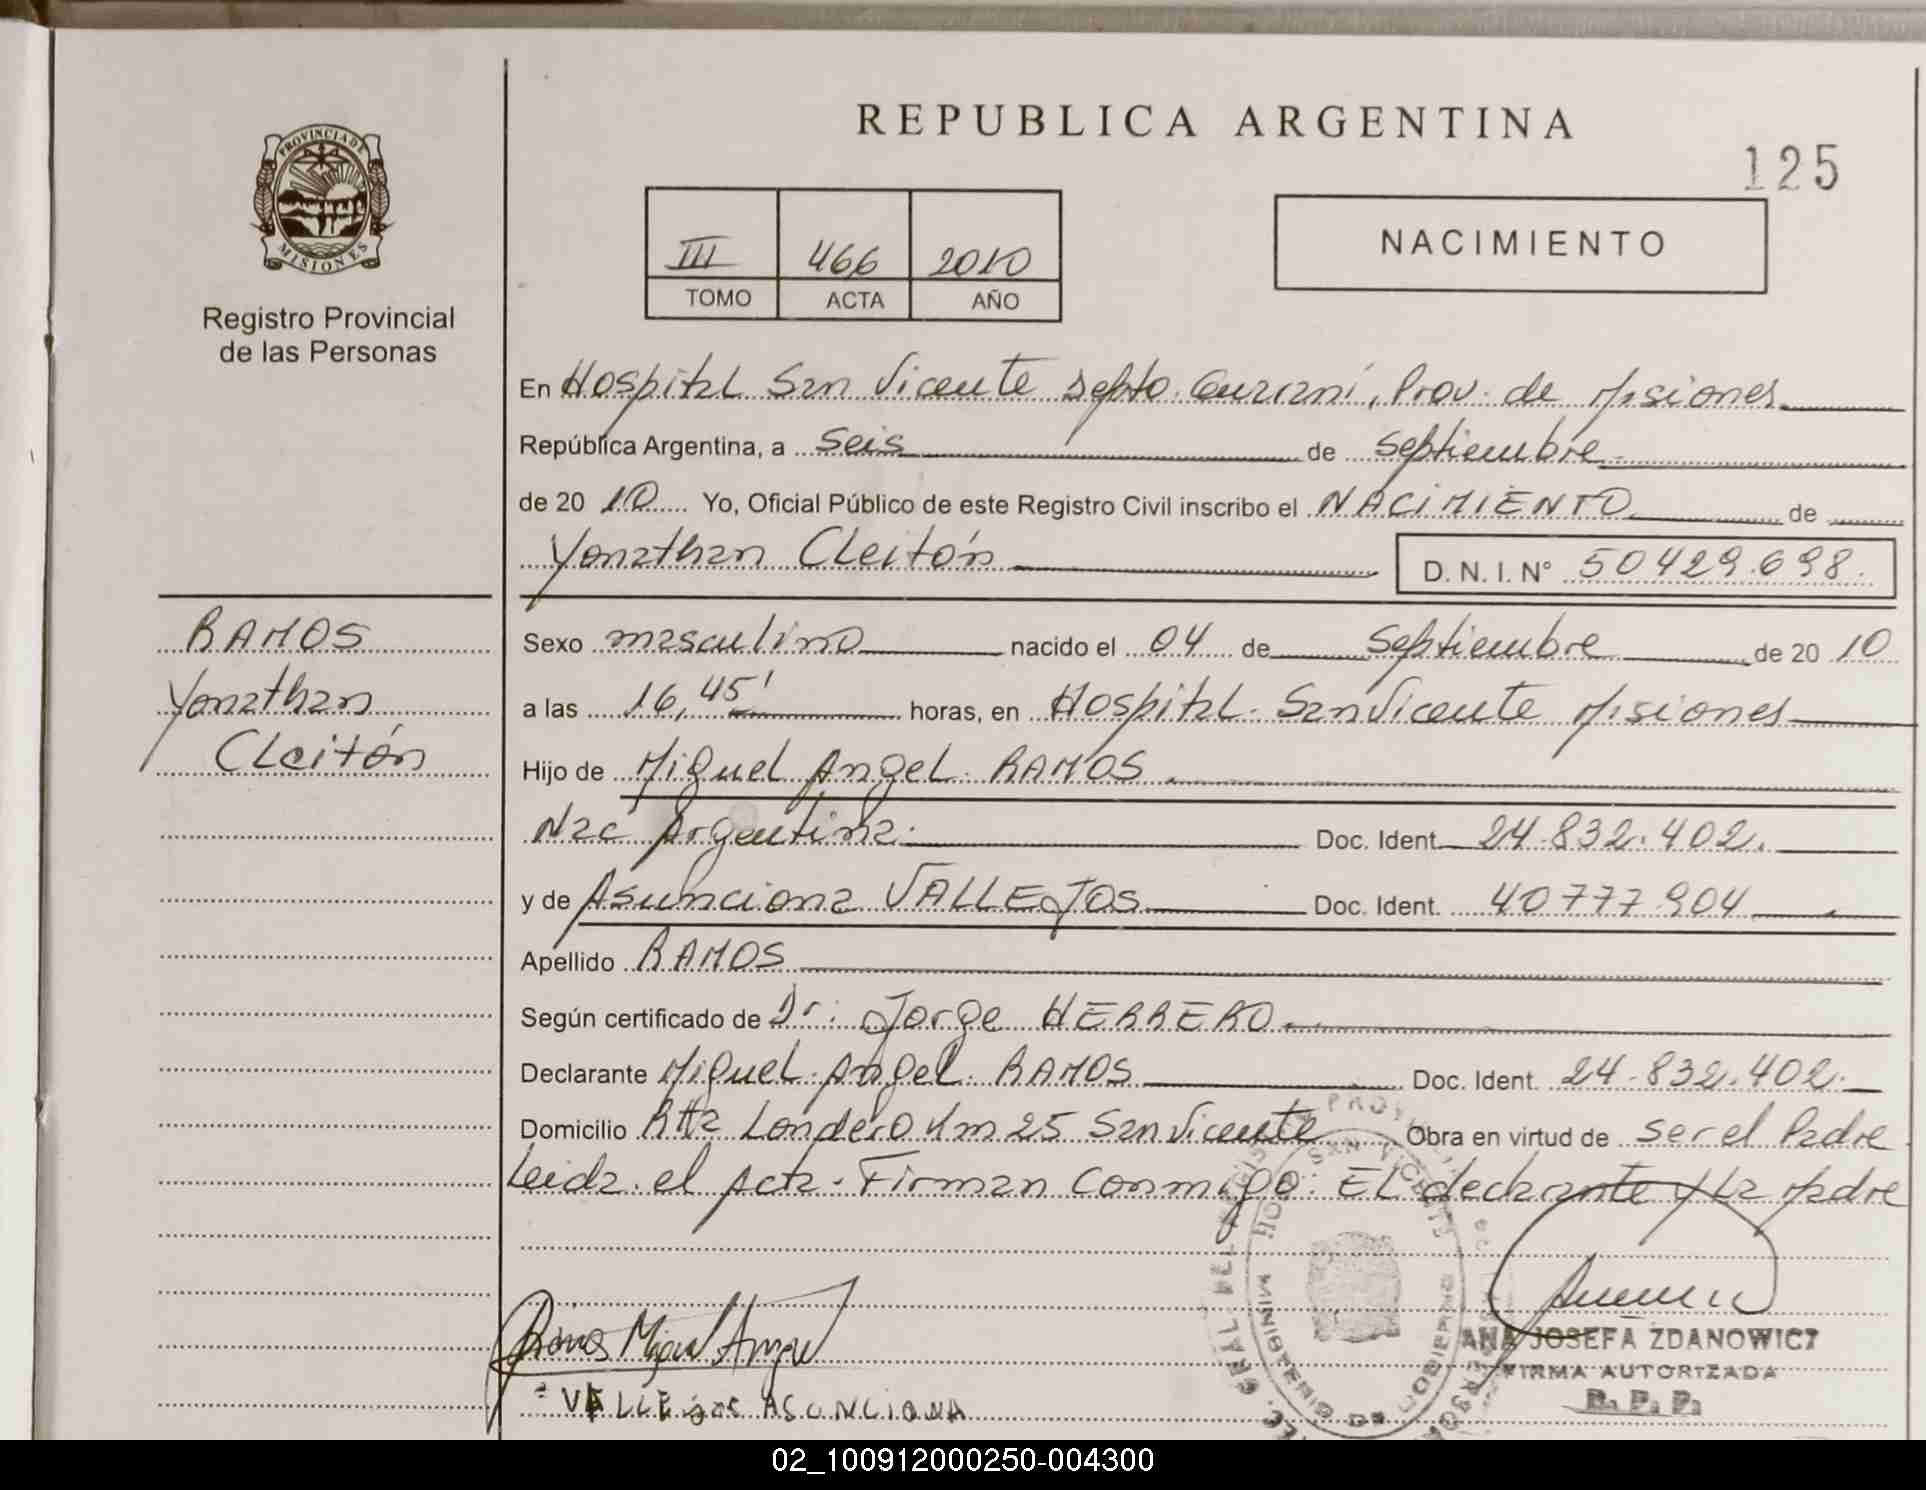 PROVINCIA DE
MISIONES
Registro Provincial
de las Personas
RAMOS
Yonathan
Cleitón
REPUBLICA ARGENTINA
125
III 466 2010
TOMO ACTA AÑO
NACIMIENTO
En Hospital San Vicente Depto. Guaraní, Prov. de Misiones
República Argentina, a Seis de Septiembre
de 20 10 Yo, Oficial Público de este Registro Civil inscribo el NACIMIENTO de
Yonathan Cleitón D. N. I. N° 50429.698.
Sexo masculino nacido el 04 de Septiembre de 20 10
a las 16,45' horas, en Hospital San Vicente Misiones
Hijo de Miguel Angel RAMOS
Nac Argentina. Doc. Ident. 24.832.402.
y de Asunciona VALLEJOS Doc. Ident. 40777904
Apellido RAMOS
Según certificado de Dr: Jorge HERRERO
Declarante Miguel Angel RAMOS Doc. Ident. 24.832.402.
Domicilio Londero Km 25 San Vicente Obra en virtud de ser el Padre
Leida el Acta. Firman Conmigo: El declarante y La Madre
HOSP. SAN VICENTE
MINISTERIO DE GOBIERNO
Ramos Miguel Angel
VALLEjos ASUNCIONA
ANA JOSEFA ZDANOWICZ
FIRMA AUTORIZADA
R. P. P.
02_100912000250-004300